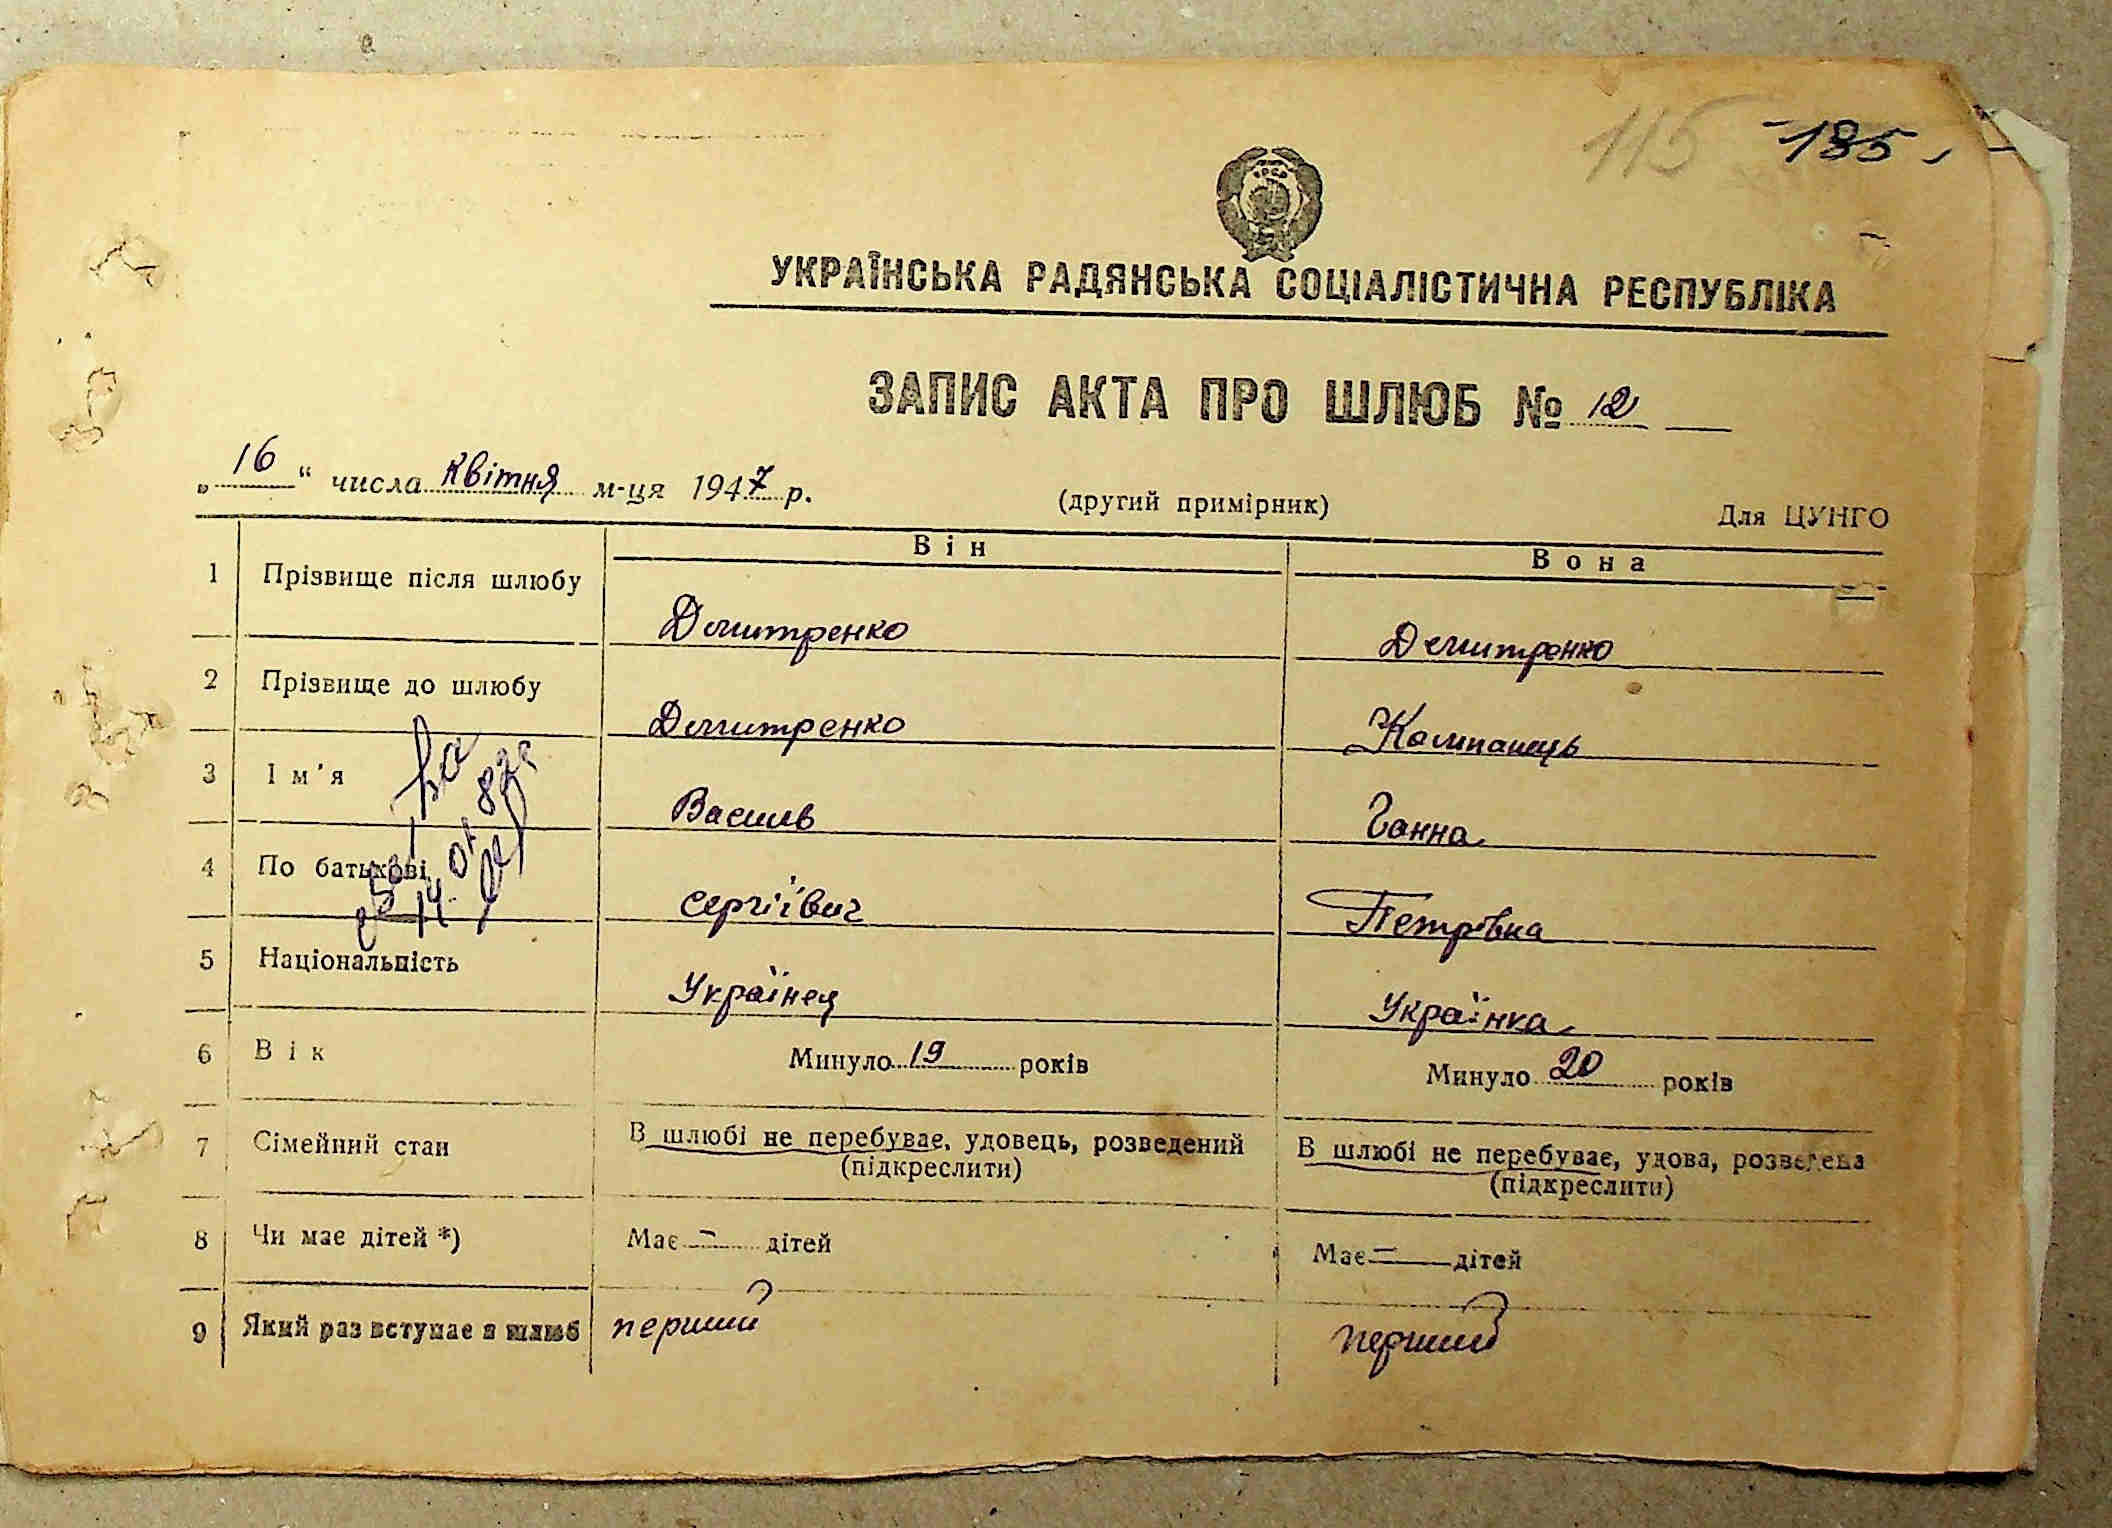 115 185
УКРАЇНСЬКА РАДЯНСЬКА СОЦІАЛІСТИЧНА РЕСПУБЛІКА
ЗАПИС АКТА ПРО ШЛЮБ № 12
„16“ числа квітня м-ця 1947 р. (другий примірник) Для ЦУНГО
Він Вона
1 Прізвище після шлюбу Дмитренко Дмитренко
2 Прізвище до шлюбу Дмитренко Компанець
3 Ім'я Василь Ганна
4 По батькові Сергіївич Петрівна
5 Національність Українец Українка
6 Вік Минуло 19 років Минуло 20 років
7 Сімейний стан В шлюбі не перебуває, удовець, розведений (підкреслити) В шлюбі не перебуває, удова, розведена (підкреслити)
8 Чи має дітей *) Має — дітей Має — дітей
9 Який раз вступає в шлюб перший перший
14.01.87р